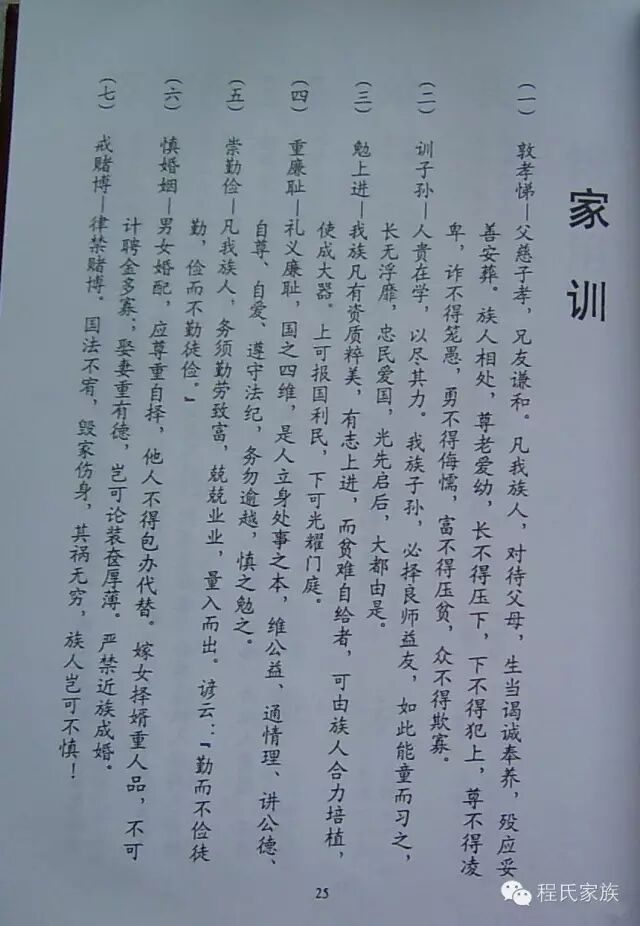 家训
(一) 敦孝悌—父慈子孝，兄友谦和。凡我族人，对待父母，生当谒诚奉养，殁应妥
善安葬。族人相处，尊老爱幼，长不得压下，下不得犯上，尊不得凌
卑，诈不得笼愚，勇不得侮懦，富不得压贫，众不得欺寡。
(二) 训子孙—人贵在学，以尽其力。我族子孙，必择良师益友，如此能童而习之，
长无浮靡，忠民爱国，光先启后，大都由是。
(三) 勉上进—我族凡有资质粹美，有志上进，而贫难自给者，可由族人合力培植，
使成大器。上可报国利民，下可光耀门庭。
(四) 重廉耻—礼义廉耻，国之四维，是人立身处事之本，维公益、通情理、讲公德、
自尊、自爱、遵守法纪，务勿逾越，慎之勉之。
(五) 崇勤俭—凡我族人，务须勤劳致富，兢兢业业，量入而出。谚云：“勤而不俭徒
勤，俭而不勤徒俭。”
(六) 慎婚姻—男女婚配，应尊重自择，他人不得包办代替。嫁女择婿重人品，不可
计聘金多寡；娶妻重有德，岂可论装奁厚薄。严禁近族成婚。
(七) 戒赌博—律禁赌博。国法不宥，毁家伤身，其祸无穷，族人岂可不慎！
25
程氏家族